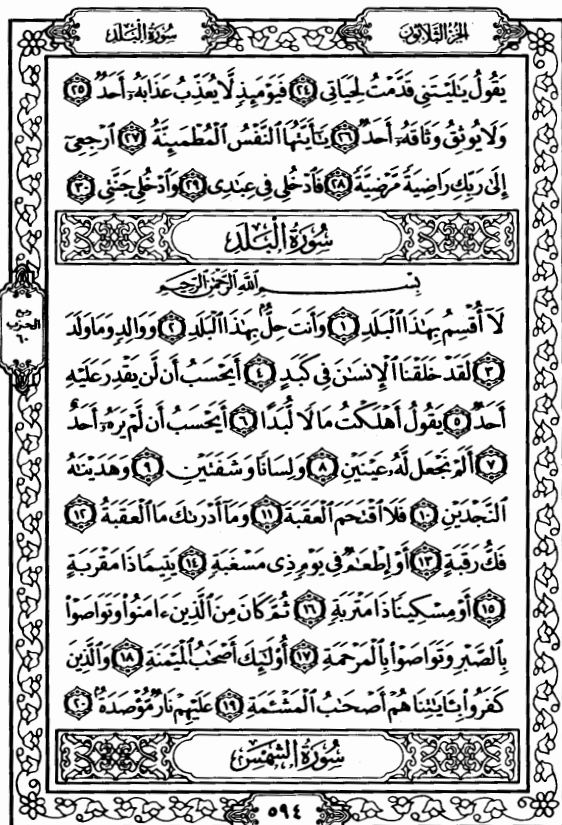 سُورَةُ الْبَلَدِ
الجُزْءُ الثَّلَاثُونَ
يَقُولُ يَٰلَيْتَنِي قَدَّمْتُ لِحَيَاتِي ٢٤ فَيَوْمَئِذٍ لَّا يُعَذِّبُ عَذَابَهُۥٓ أَحَدٌ ٢٥
وَلَا يُوثِقُ وَثَاقَهُۥٓ أَحَدٌ ٢٦ يَٰٓأَيَّتُهَا ٱلنَّفْسُ ٱلْمُطْمَئِنَّةُ ٢٧ ٱرْجِعِيٓ
إِلَىٰ رَبِّكِ رَاضِيَةً مَّرْضِيَّةً ٢٨ فَٱدْخُلِي فِي عِبَٰدِي ٢٩ وَٱدْخُلِي جَنَّتِي ٣٠
سُورَةُ الْبَلَدِ
بِسْمِ ٱللَّهِ ٱلرَّحْمَٰنِ ٱلرَّحِيمِ
لَآ أُقْسِمُ بِهَٰذَا ٱلْبَلَدِ ١ وَأَنتَ حِلٌّۢ بِهَٰذَا ٱلْبَلَدِ ٢ وَوَالِدٍ وَمَا وَلَدَ
٣ لَقَدْ خَلَقْنَا ٱلْإِنسَٰنَ فِي كَبَدٍ ٤ أَيَحْسَبُ أَن لَّن يَقْدِرَ عَلَيْهِ
أَحَدٌ ٥ يَقُولُ أَهْلَكْتُ مَالًا لُّبَدًا ٦ أَيَحْسَبُ أَن لَّمْ يَرَهُۥٓ أَحَدٌ
٧ أَلَمْ نَجْعَل لَّهُۥ عَيْنَيْنِ ٨ وَلِسَانًا وَشَفَتَيْنِ ٩ وَهَدَيْنَٰهُ
ٱلنَّجْدَيْنِ ١٠ فَلَا ٱقْتَحَمَ ٱلْعَقَبَةَ ١١ وَمَآ أَدْرَىٰكَ مَا ٱلْعَقَبَةُ ١٢
فَكُّ رَقَبَةٍ ١٣ أَوْ إِطْعَٰمٌ فِي يَوْمٍ ذِي مَسْغَبَةٍ ١٤ يَتِيمًا ذَا مَقْرَبَةٍ
١٥ أَوْ مِسْكِينًا ذَا مَتْرَبَةٍ ١٦ ثُمَّ كَانَ مِنَ ٱلَّذِينَ ءَامَنُوا۟ وَتَوَاصَوْا۟
بِٱلصَّبْرِ وَتَوَاصَوْا۟ بِٱلْمَرْحَمَةِ ١٧ أُو۟لَٰٓئِكَ أَصْحَٰبُ ٱلْمَيْمَنَةِ ١٨ وَٱلَّذِينَ
كَفَرُوا۟ بِـَٔايَٰتِنَا هُمْ أَصْحَٰبُ ٱلْمَشْـَٔمَةِ ١٩ عَلَيْهِمْ نَارٌ مُّؤْصَدَةٌۢ ٢٠
سُورَةُ الشَّمْسِ
٥٩٤
ربع
الحزب
٦٠